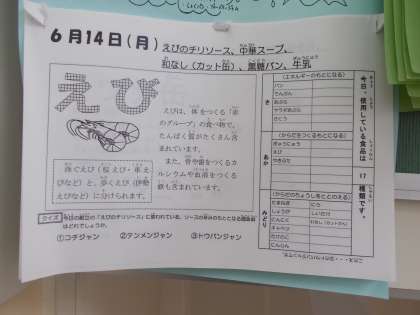 6月14日(月)
えびのチリソース、中華スープ、
和なし(カット缶)、黒糖パン、牛乳
えび
えびは、体をつくる「赤
のグループ」の食べ物で、
たんぱく質がたくさん含
まれています。
また、骨や歯をつくるカ
ルシウムや血液をつくる
鉄も含まれています。
泳ぐえび(桜えび・車え
びなど)と、歩くえび(伊勢
えびなど)に分けられます。
クイズ
今日の献立の「えびのチリソース」に使われている、ソースの辛みのもととなる調味料
はどれでしょうか。
①コチジャン ②テンメンジャン ③トウバンジャン
今日、使用している食品は 17 種類です。
(エネルギーのもとになる)
き
パン
でんぷん
あぶら
ごまあぶら
さとう
(からだをつくるもとになる)
あか
ぎゅうにゅう
えび
(からだのちょうしをととのえる)
みどり
たまねぎ
しょうが
にんじん
にら
しいたけ
なし(カットかん)